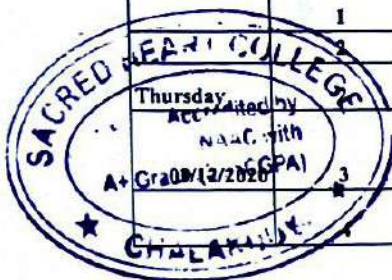 1
2
SACRED HEART COLLEGE
Thursday
Accredited by
NAAC with
A+ CGPA)
3
CHALAKUDY